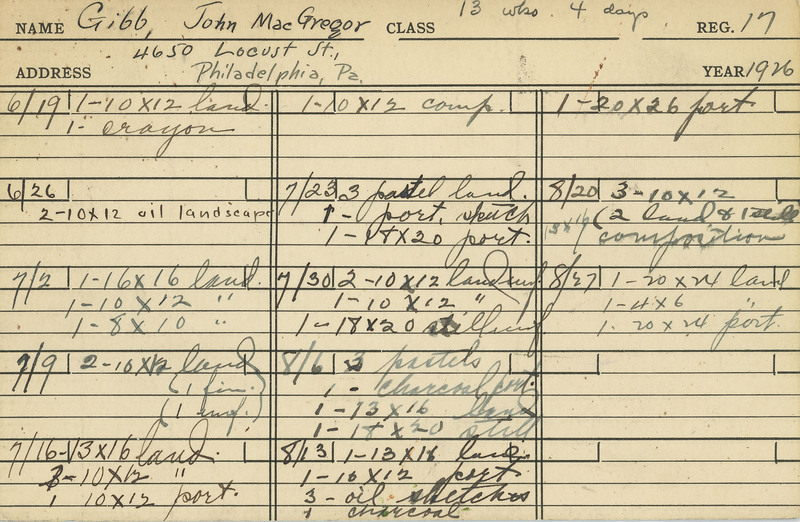 NAME Gibb, John MacGregor CLASS 13 wks. 4 days REG. 17
4650 Locust St.,
ADDRESS Philadelphia, Pa. YEAR 1926
6/19 1-10x12 land.
1- crayon
6/26
2-10x12 oil landscape
7/2 1-16x16 land.
1-10x12 "
1-8x10 "
7/9 2-10x12 land
(1 fin.)
(1 unf.)
7/16 13x16 land.
10x12 "
1 10x12 port.
1-10x12 comp.
7/23 3 pastel land.
1- port. sketch
1-18x20 port.
7/30 2-10x12 land unf
1-10x12 "
1-18x20 still unf
8/6 3 pastels
1- charcoal port.
1-13x16 land
1-18x20 still
8/13 1-13x16 land.
1-10x12 port.
3- oil sketches
1 charcoal
1-20x26 port.
8/20 3-10x12
(2 land & 1 still
13x16 composition
8/27 1-20x24 land
1-4x6 "
1-20x24 port.